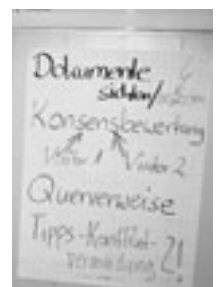 Dokumente
sichten/
Konsensbewertung
Viator 1 Viator 2
Querverweise
Tipps-Konflikt-
vermeidung ?!